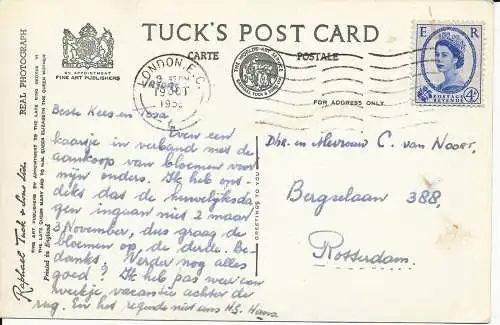 TUCK'S POST CARD
CARTE POSTALE
BY APPOINTMENT
FINE ART PUBLISHERS
THE WORLD'S ART SERVICE
RAPHAEL TUCK & SONS LTD
FOR ADDRESS ONLY
LONDON. E.C.
19 OCT
195
E R
POSTAGE
REVENUE
4D
REAL PHOTOGRAPH
FINE ART PUBLISHERS BY APPOINTMENT TO THE LATE KING GEORGE VI
THE LATE QUEEN MARY AND TO HM. QUEEN ELIZABETH THE QUEEN MOTHER
Raphael Tuck & Sons Ltd.
Printed in England
GREETINGS TO YOU
Beste Kees en
even een
kaartje in verband met de
aankoop van bloemen voor
mijn ouders. Ik heb ont-
dekt dat de huwelijksda-
gen ingaan niet 2 maar
3 November, dus graag de
bloemen op de derde. Be-
dankt. Verder nog alles
goed? Ik heb pas weer een
weekje vacantie achter de
rug. En het regende niet eens H.G. Hans
Dhr. en Mevrouw C. van Noort.
Bergselaan 388,
Rotterdam.